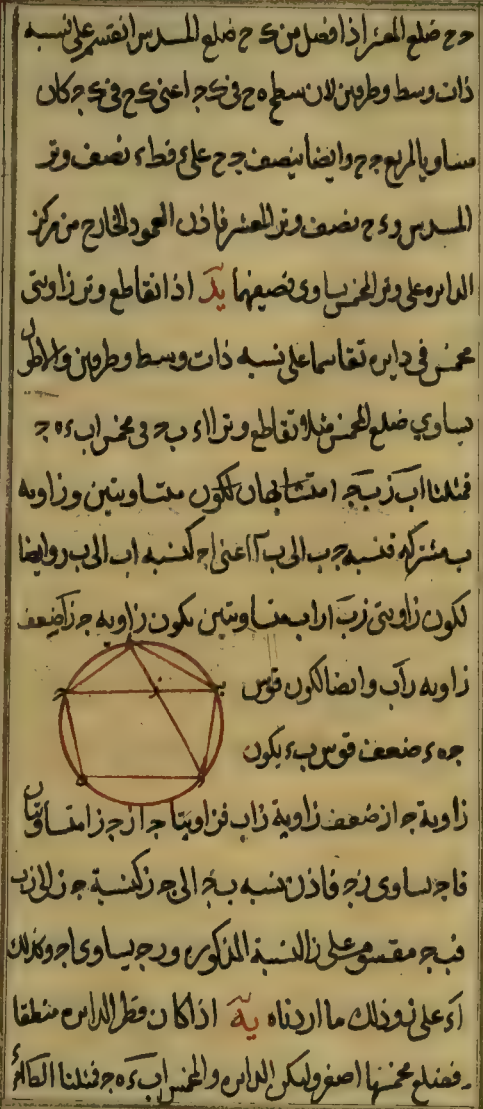 حح ضلع المعشر اذا فصل من ءح ضلع المسدس انقسم على نسبة
ذات وسط وطرفين لان سطح ءح فى ءج اعنى ءح فى ءج كان
مساويا لمربع جح وايضا ينصف جح على فطء نصف وتر
المسدس و ح نصف وتر المعشر فاذن العمود الخارج من مركز
الدايره على وتر المخمس يساوى نصيفهما يد اذا تقاطع وتر زاويتى
مخمس فى دايره تقاسما على نسبه ذات وسط وطرفين والاطول
يساوي ضلع المخمس مثلا تقاطع وترا اء بج فى مخمس اب ه ج
فمثلثا اب ز بج ا متشابهان لكون متساويتين وزاويه
ب مشتركه فنسبه جب الى با اعنى اج كنسبه اب الى بر وايضا
لكون زاويتى زب ا راب متساويتين يكون زاويه ج ز ا ضعف
زاويه راب وايضا لكون قوس
جهء ضعف قوس بء يكون
زاوية ج از ضعف زاوية زاب فزاويتا ج از ج ز ا متساويتان
فاج يساوى زج فاذن نسبه بج الى ج ز كنسبة ج ز الى زب
فبج مقسوم على ز النسبة المذكوره ورج يساوى اج وكذلك
اء على ز وذلك ما اردناه يه اذا كان قطر الدايره منطقا
فضلع مخمسها اصغر وليكن الدايره والمخمس اب ء ه ج فمثلثا